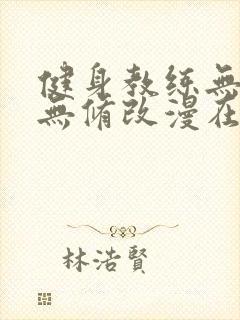 健身教练無
無脩改漫在
林浩賢